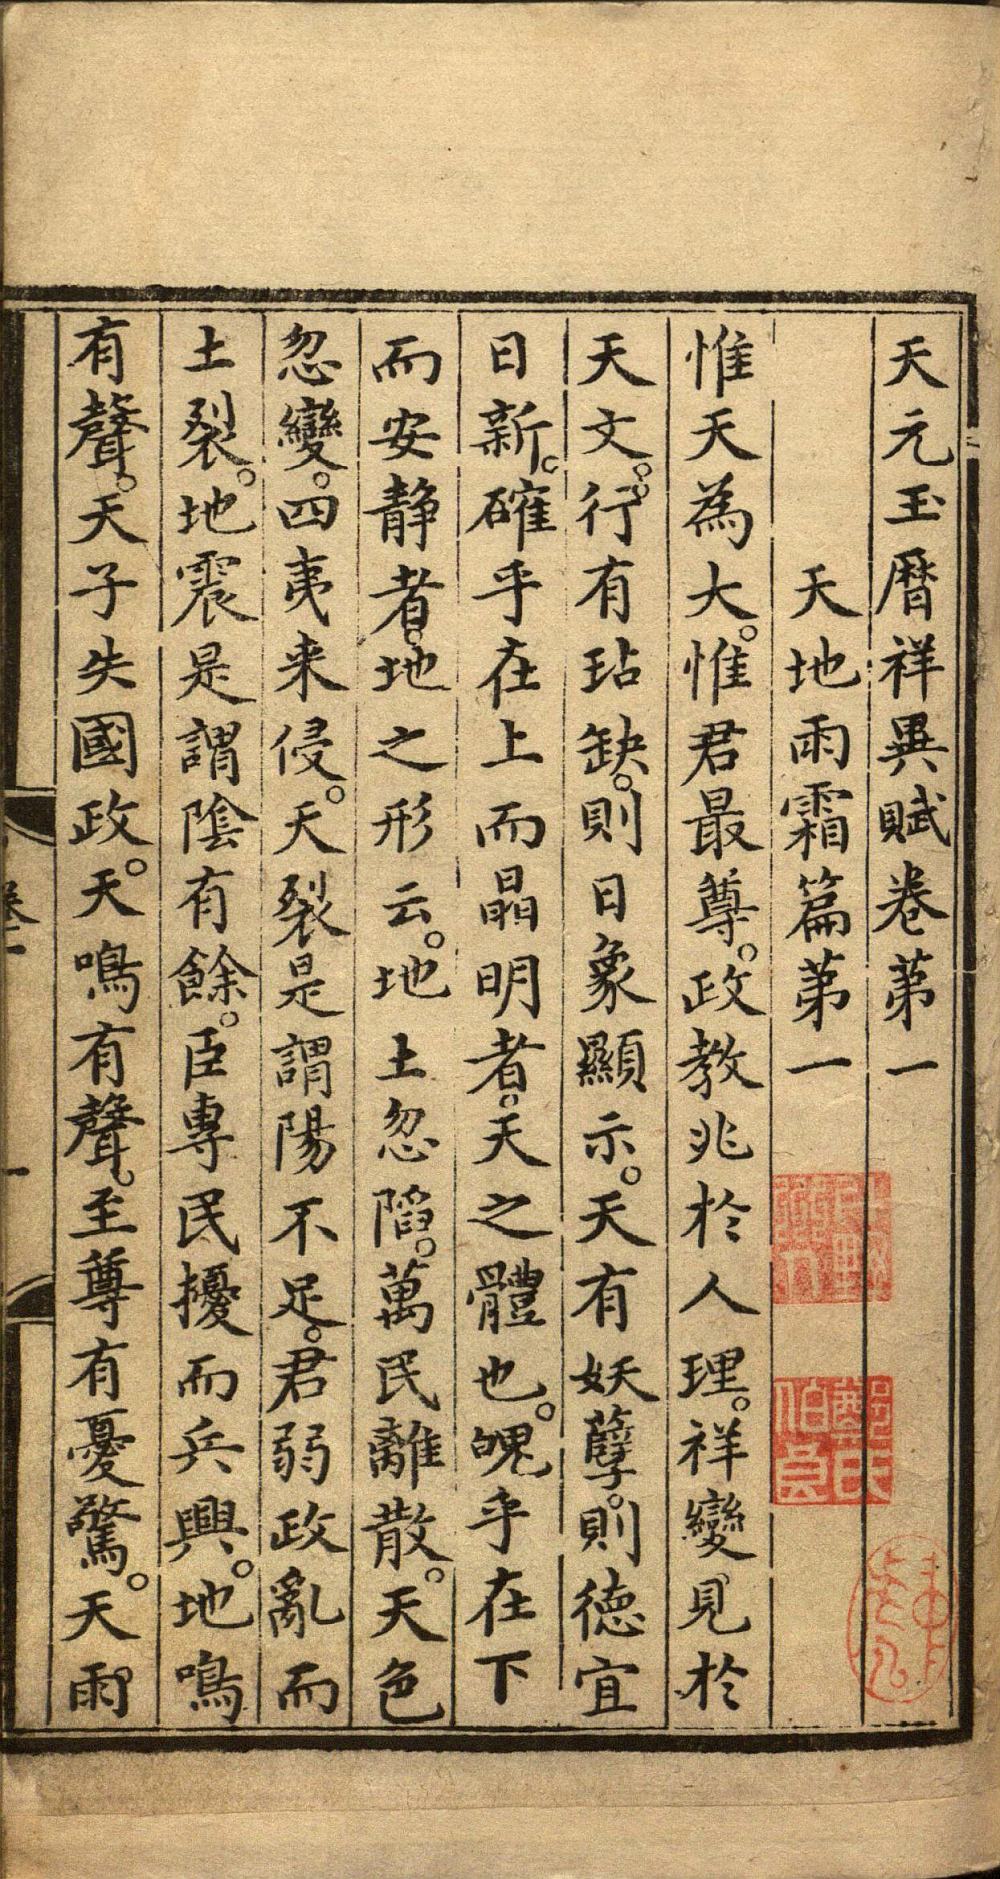 天元玉暦祥異賦卷第一
天地雨霜篇第一
惟天為大。惟君最尊。政教兆於人理。祥變見於
天文。行有玷缺。則日象顯示。天有妖孽。則德宜
日新。確乎在上而晶明者。天之體也。魄乎在下
而安静者。地之形云。地土忽陷。萬民離散。天色
忽變。四夷来侵。天裂是謂陽不足。君弱政亂而
土裂。地震是謂陰有餘。臣專民擾而兵興。地鳴
有聲。天子失國政。天鳴有聲。至尊有憂驚。天雨
卷一
一